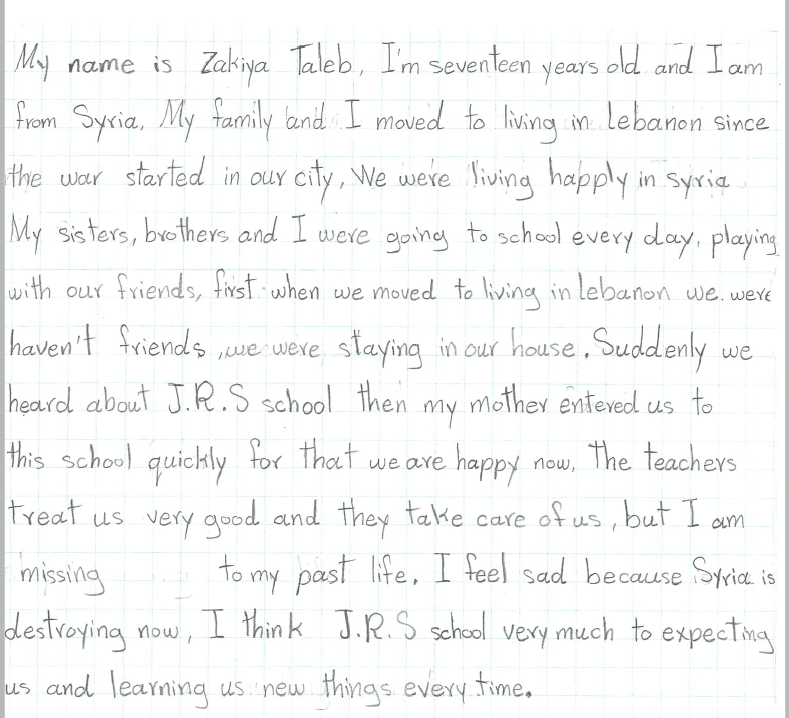 My name is Zakiya Taleb, I'm seventeen years old and I am
from Syria, My family and I moved to living in lebanon since
the war started in our city, We were living happly in syria
My sisters, brothers and I were going to school every day, playing
with our friends, first when we moved to living in lebanon we were
haven't friends, we were staying in our house. Suddenly we
heard about J.R.S school then my mother entered us to
this school quickly for that we are happy now, The teachers
treat us very good and they take care of us, but I am
missing to my past life. I feel sad because Syria is
destroying now, I think J.R.S school very much to expecting
us and learning us new things every time.